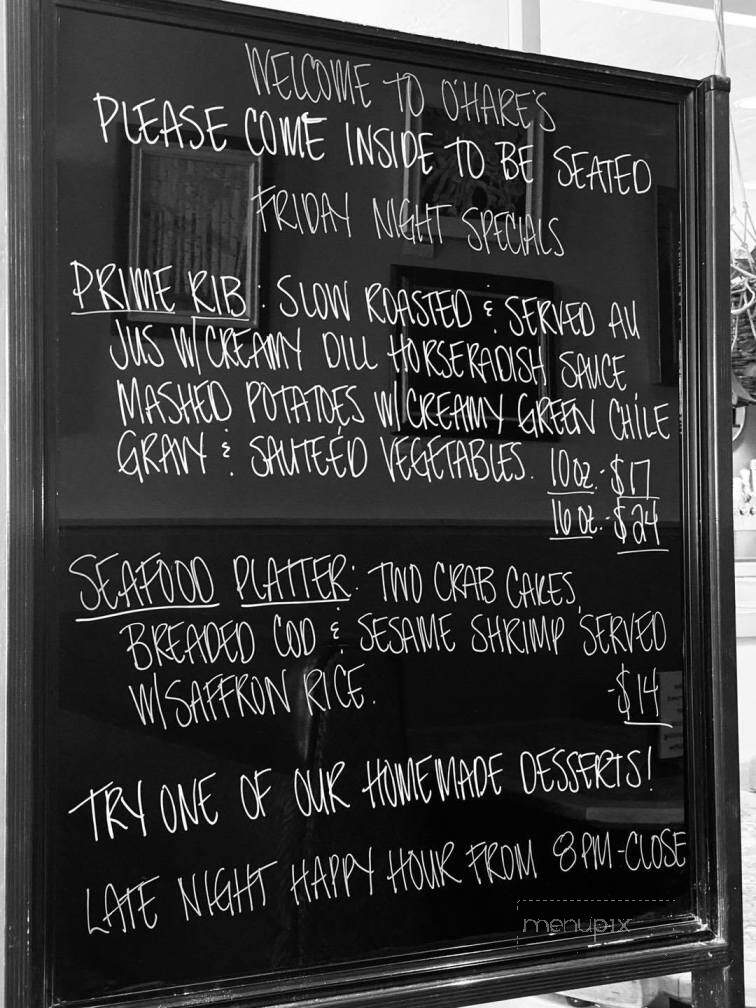 WELCOME TO O'HARE'S
PLEASE COME INSIDE TO BE SEATED
FRIDAY NIGHT SPECIALS
PRIME RIB: SLOW ROASTED & SERVED AU
JUS W/CREAMY DILL HORSERADISH SAUCE
MASHED POTATOES W/CREAMY GREEN CHILE
GRAVY & SAUTEÉD VEGETABLES. 10oz.-$17
16 oz.-$24
SEAFOOD PLATTER: TWO CRAB CAKES,
BREADED COD & SESAME SHRIMP SERVED
W/SAFFRON RICE. -$14
TRY ONE OF OUR HOMEMADE DESSERTS!
LATE NIGHT HAPPY HOUR FROM 8PM-CLOSE
menupix